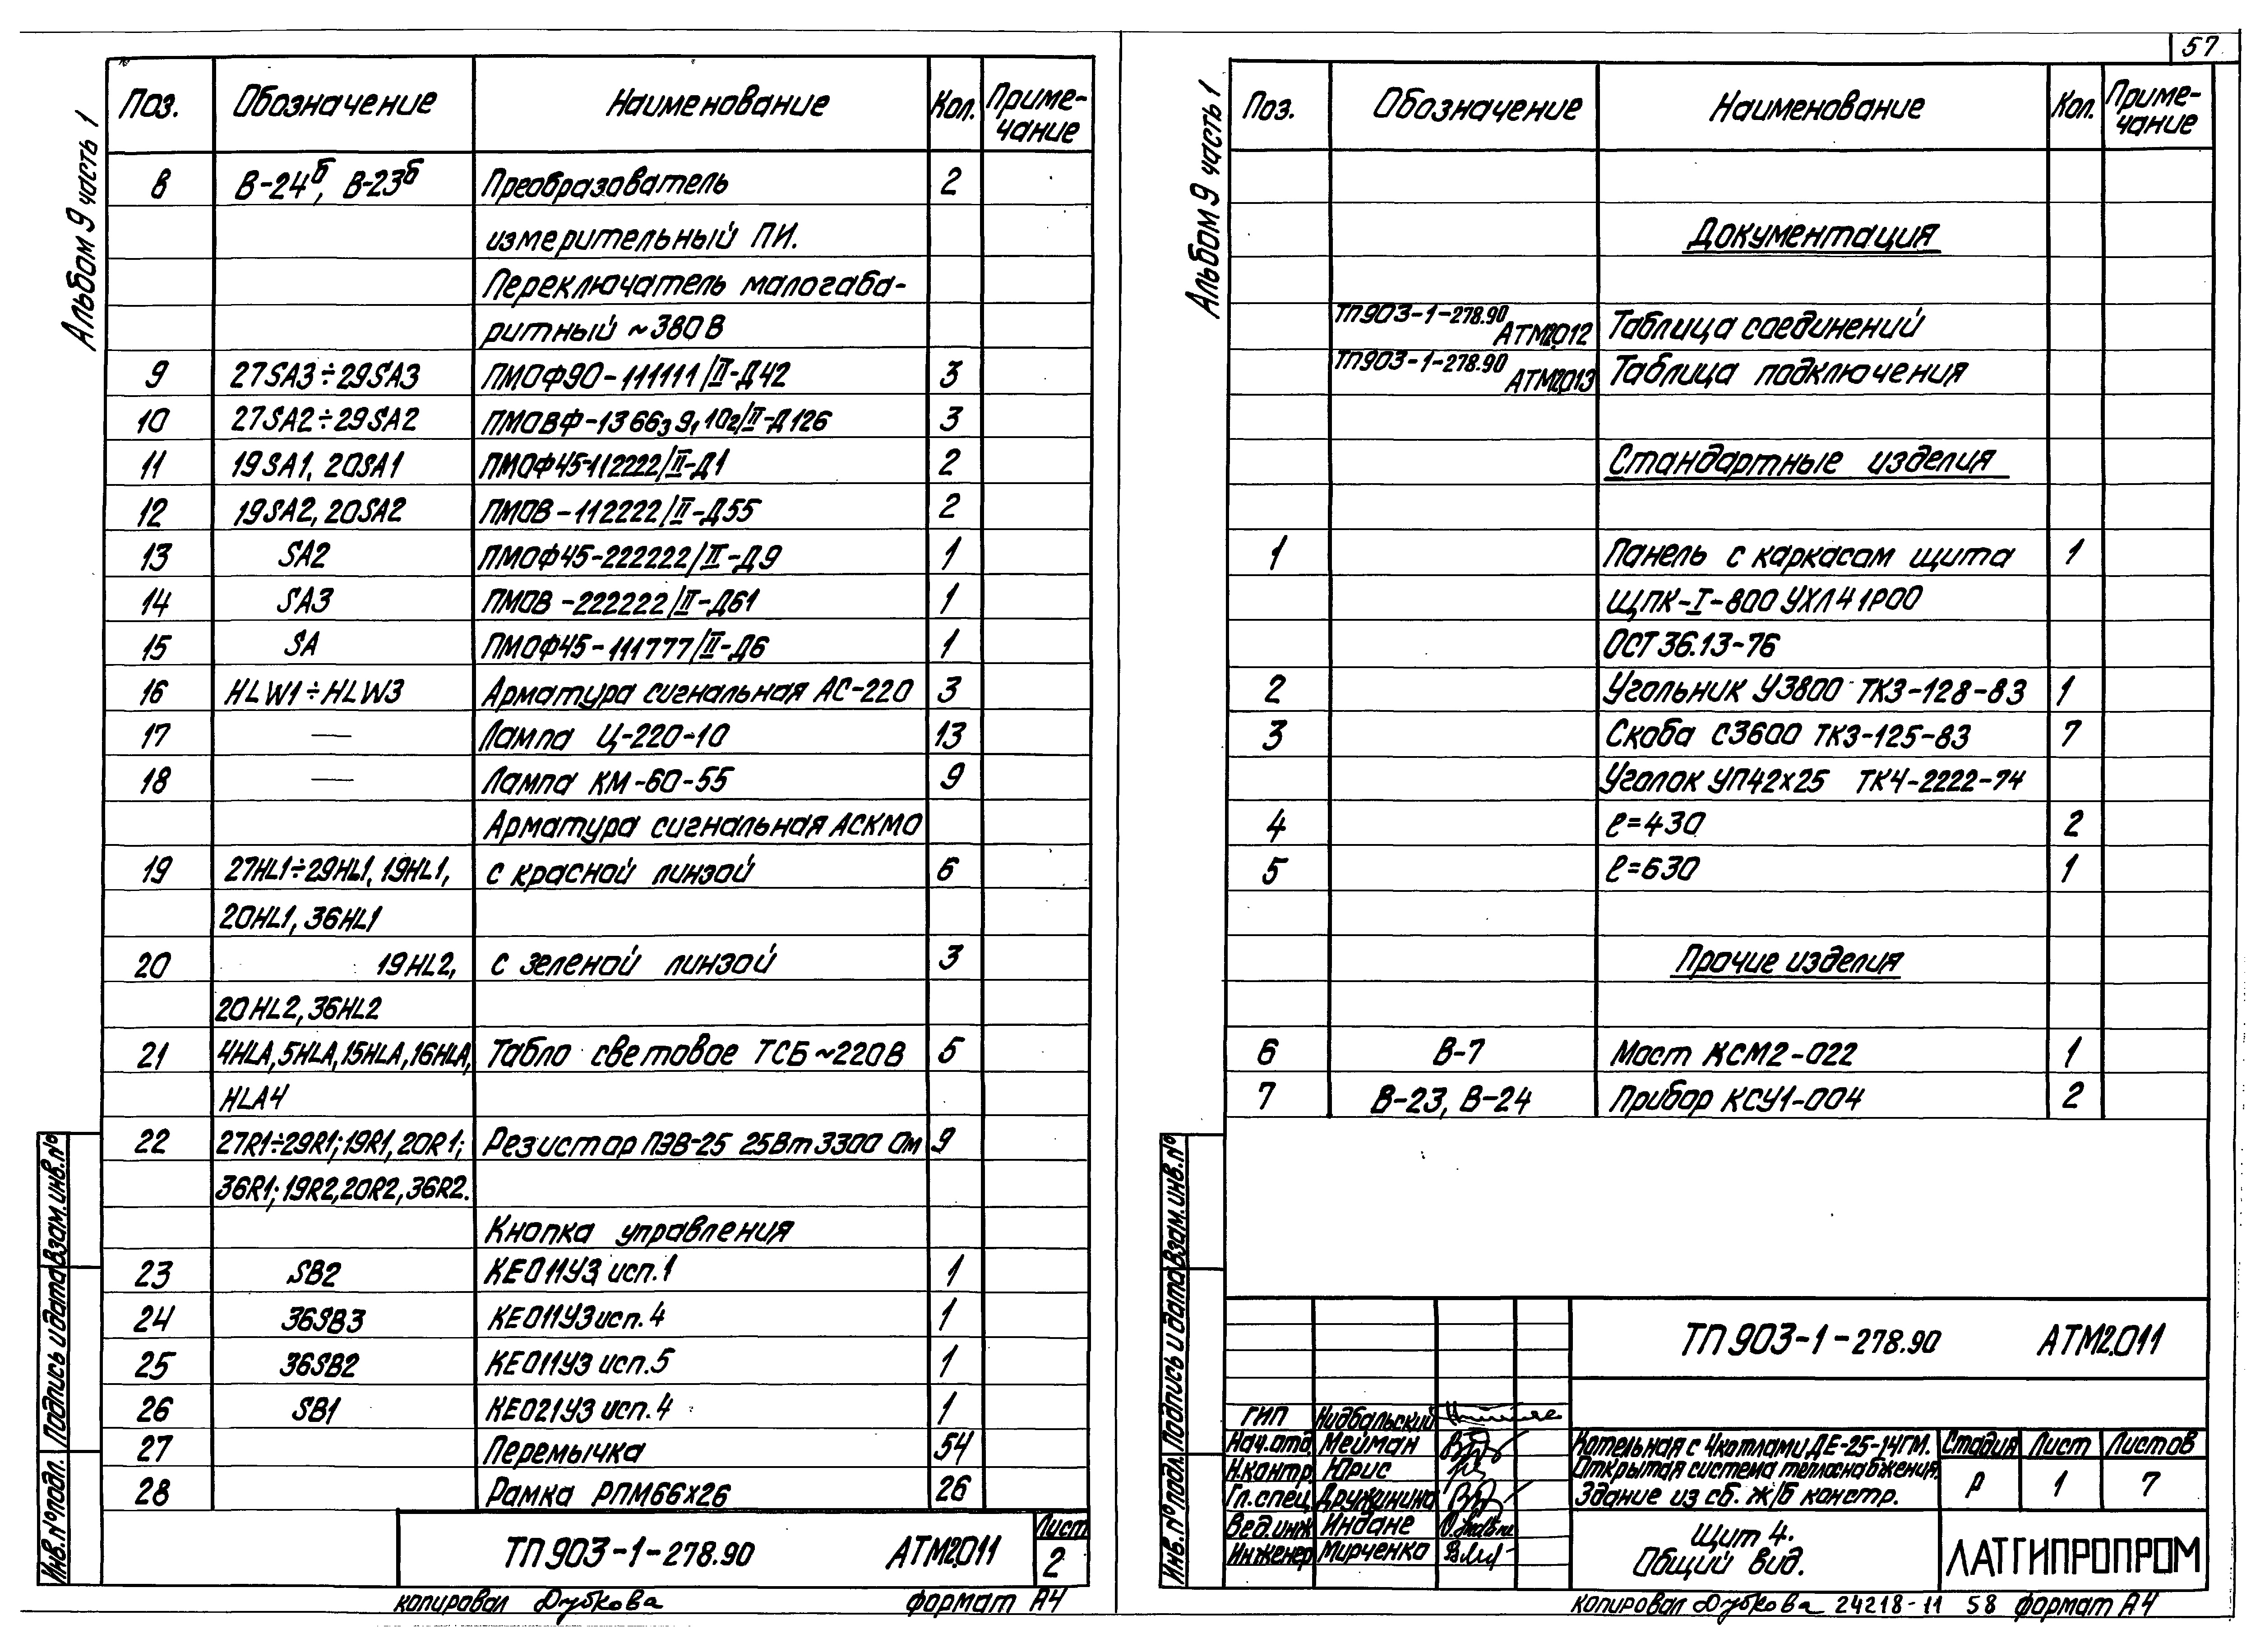 Альбом 9 часть 1
Поз. Обозначение Наименование Кол. Приме-
чание
8 В-24б, В-23б Преобразователь 2
измерительный ПИ.
Переключатель малогаба-
ритный ~380В
9 27SA3÷29SA3 ПМОФ90-111111/II-Д42 3
10 27SA2÷29SA2 ПМОВФ-1366₃9,10₂/II-Д126 3
11 19SA1, 20SA1 ПМОФ45-112222/II-Д1 2
12 19SA2, 20SA2 ПМОВ-112222/II-Д55 2
13 SA2 ПМОФ45-222222/II-Д9 1
14 SA3 ПМОВ-222222/II-Д61 1
15 SA ПМОФ45-111777/II-Д6 1
16 HLW1÷HLW3 Арматура сигнальная АС-220 3
17 — Лампа Ц-220-10 13
18 — Лампа КМ-60-55 9
Арматура сигнальная АСКМО
19 27HL1÷29HL1, 19HL1, с красной линзой 6
20HL1, 36HL1
20 19HL2, с зеленой линзой 3
20HL2, 36HL2
21 4HLA, 5HLA, 15HLA, 16HLA, Табло световое ТСБ ~220В 5
HLA4
22 27R1÷29R1; 19R1, 20R1; Резистор ПЭВ-25 25Вт 3300 Ом 9
36R1; 19R2, 20R2, 36R2.
Кнопка управления
23 SB2 КЕ011У3 исп.1 1
24 36SB3 КЕ011У3 исп.4 1
25 36SB2 КЕ011У3 исп.5 1
26 SB1 КЕ021У3 исп.4 1
27 Перемычка 54
28 Рамка РПМ66х26 26
Взам.инв.№
Подпись и дата
Инв.№подл.
ТП 903-1-278.90 АТМ2.011
Лист
2
копировал Дубкова формат А4
57
Альбом 9 часть 1
Поз. Обозначение Наименование Кол. Приме-
чание
Документация
ТП903-1-278.90
АТМ2.012 Таблица соединений
ТП903-1-278.90
АТМ2.013 Таблица подключения
Стандартные изделия
1 Панель с каркасом щита 1
ЩПК-I-800 УХЛ4 1Р00
ОСТ 36.13-76
2 Угольник У3800 ТК3-128-83 1
3 Скоба С3600 ТК3-125-83 7
Уголок УП42х25 ТК4-2222-74
4 ℓ=430 2
5 ℓ=630 1
Прочие изделия
6 В-7 Мост КСМ2-022 1
7 В-23, В-24 Прибор КСУ1-004 2
Взам.инв.№
Подпись и дата
Инв.№подл.
ТП 903-1-278.90 АТМ2.011
ГИП Нидбальский
Нач.отд. Мейман
Н.контр. Юрис
Гл.спец. Дружинина
Вед.инж. Индане
Инженер Мирченко
Котельная с 4 котлами ДЕ-25-14ГМ.
Открытая система теплоснабжения.
Здание из сб. ж/б констр.
Стадия Лист Листов
Р 1 7
Щит 4.
Общий вид.
ЛАТГИПРОПРОМ
копировал Дубкова 24218-11 58 формат А4